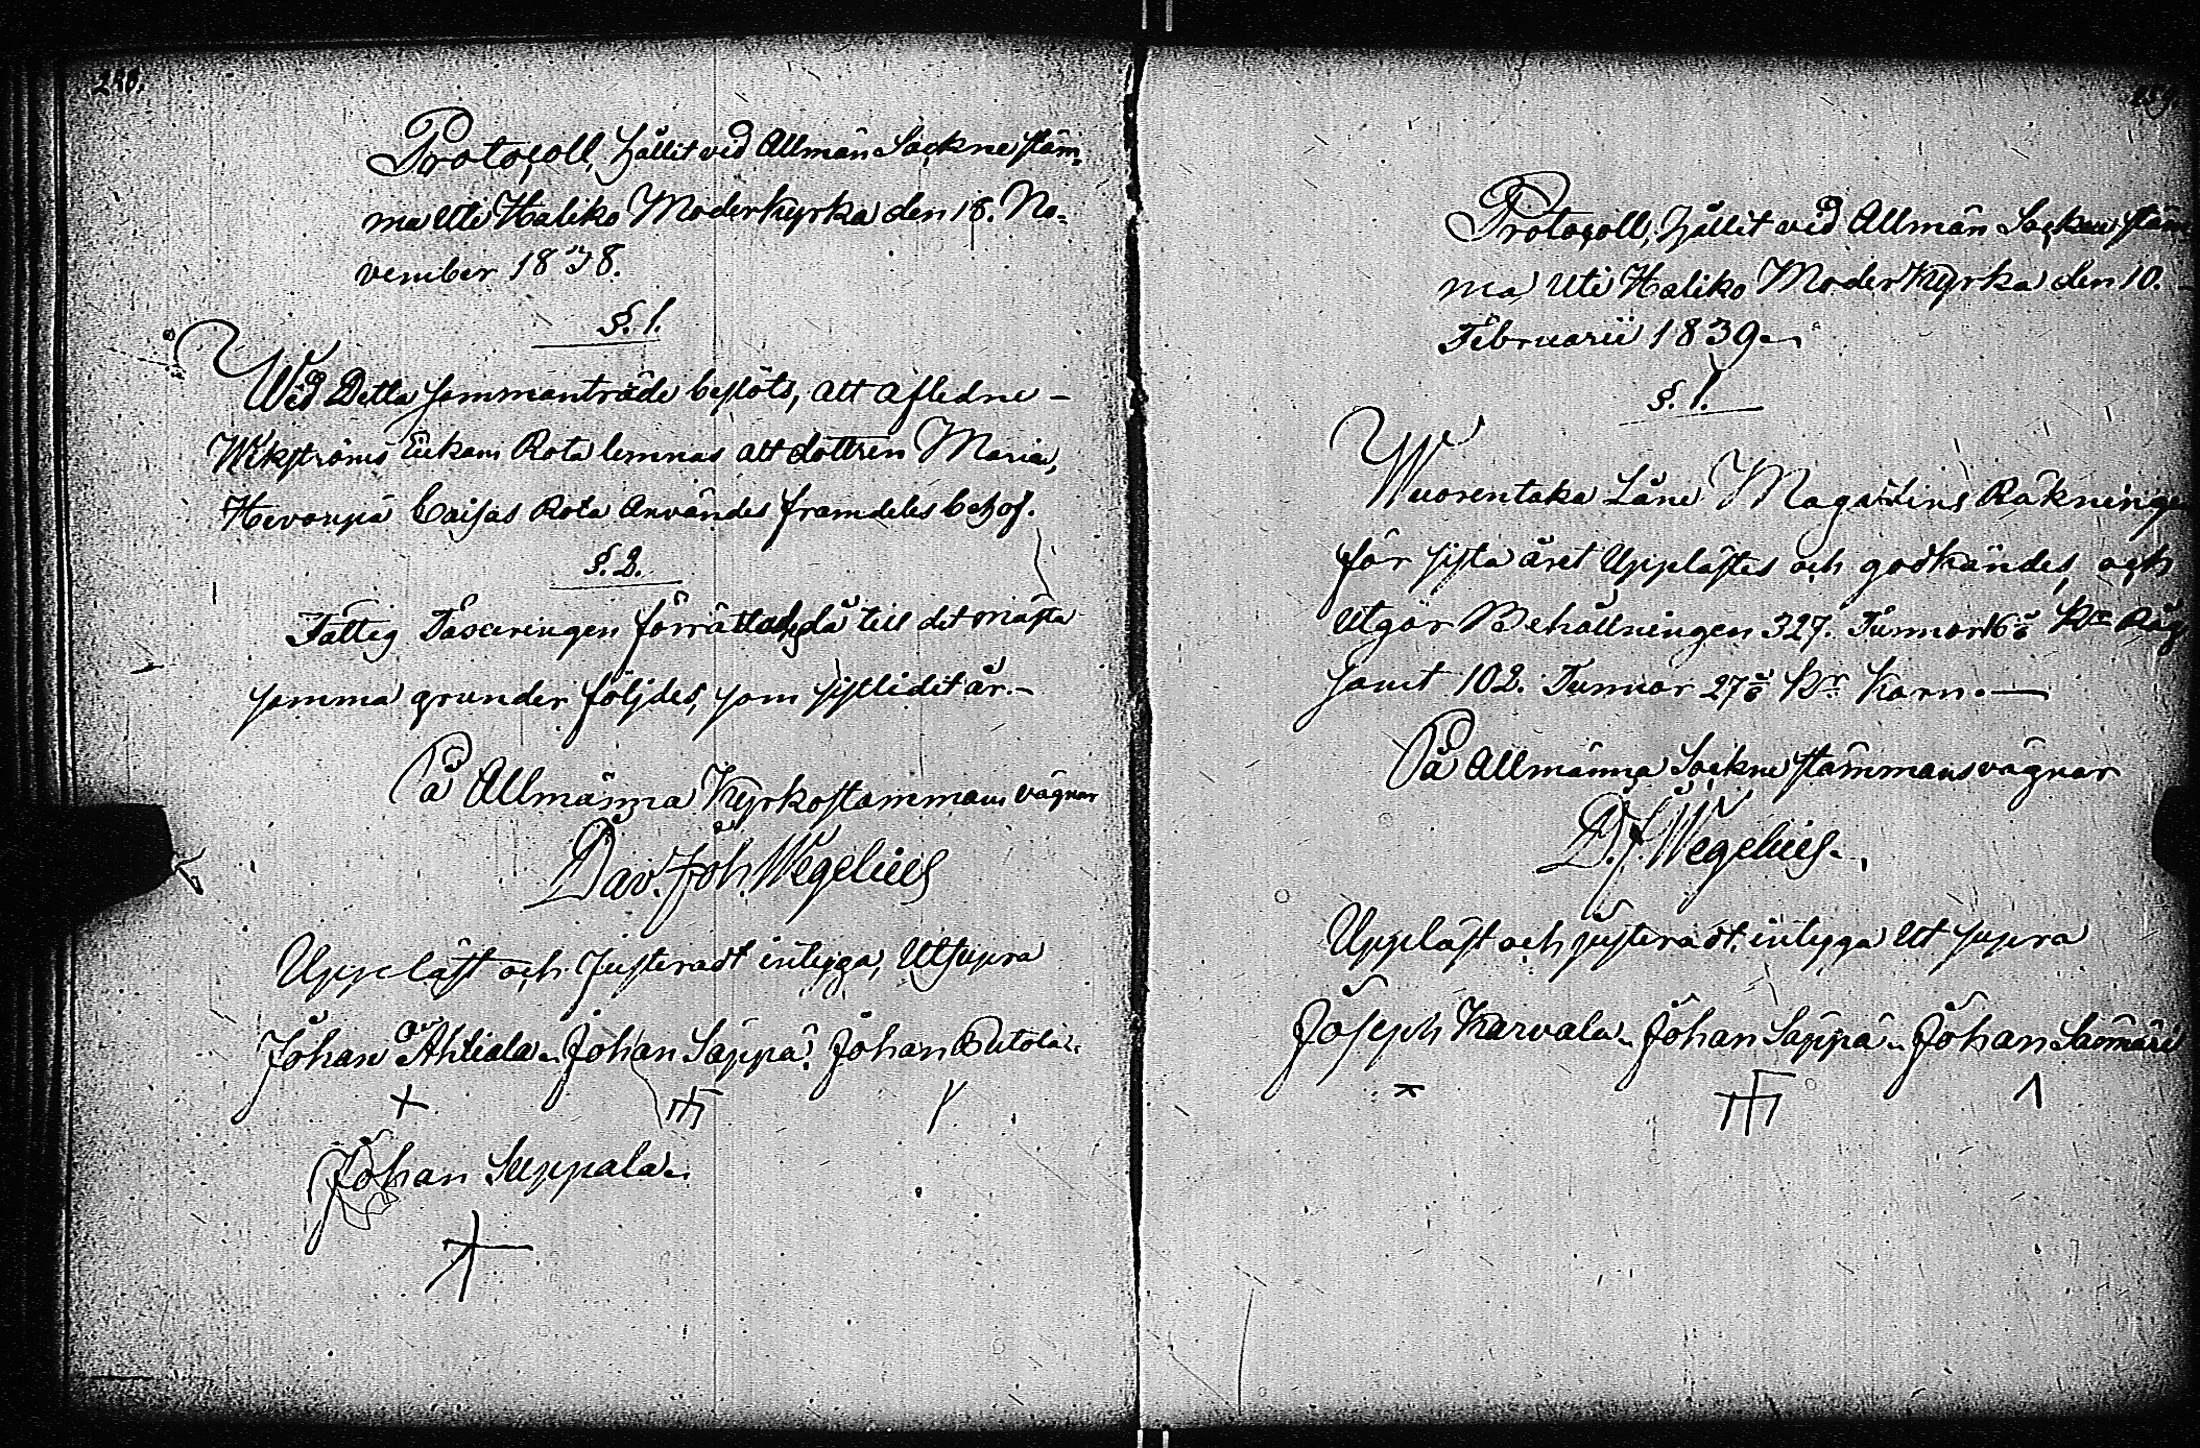 Protocoll, hållit vid Allmän Sockne stäm¬
ma uti Haliko Moderkyrka den 18. No¬
vember 1838.
§. 1.
Wid Detta sammanträde beslöts, att afledne
Wikströms Enkans Rota lemnas åt dottren Maria,
Hevonpä Caisas Rota användes framdeles behof.
§. 2.
Fattig Taxeringen förrättades då till det mästa
samma grunder följdes, som sistledit år.
På Allmänna Kyrkostämmans vägnar
Dav. Joh. Wegelius
Uppläst och Justeradt intyga, Ut supra
Johan Ahtiala. Johan Säppä. Johan
Johan Suppala.
Protocoll, hållit vid Allmän Socken stäm
ma uti Haliko Moderkyrka den 10.
Februarii 1839.
§. 1.
Wuorentaka Låne Magazins Räkninge
för sista året Upplästes och godkändes, och
utgör Behållningen 327. Tunnor 16 Råg
samt 102. Tunnor 27 Kr Korn.
På Allmänna Sockne stämmans vägnar
D. J. Wegelius.
Uppläst och justeradt, intyga Ut supra
Joseph Karvala. Johan Säppä. Johan